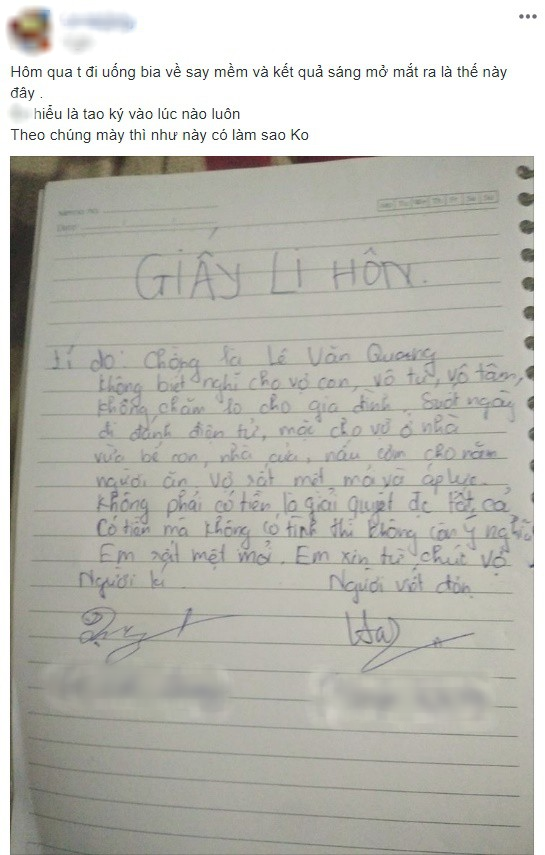 Hôm qua t đi uống bia về say mềm và kết quả sáng mở mắt ra là thế này
đây .
hiểu là tao ký vào lúc nào luôn
Theo chúng mày thì như này có làm sao Ko
Date:
GIẤY LI HÔN.
Lí do: Chồng là Lê Văn Quang
không biết nghĩ cho vợ con, vô tư, vô tâm,
không chăm lo cho gia đình. Suốt ngày
đi đánh điện tử, mặc cho vợ ở nhà
vừa bế con, nhà cửa, nấu cơm cho năm
người ăn. Vợ rất mệt mỏi và áp lực.
không phải có tiền là giải quyết đc tất cả
Có tiền mà không có tình thì không còn ý nghĩa
Em rất mệt mỏi. Em xin từ chức vợ
Người kí
Người viết đơn